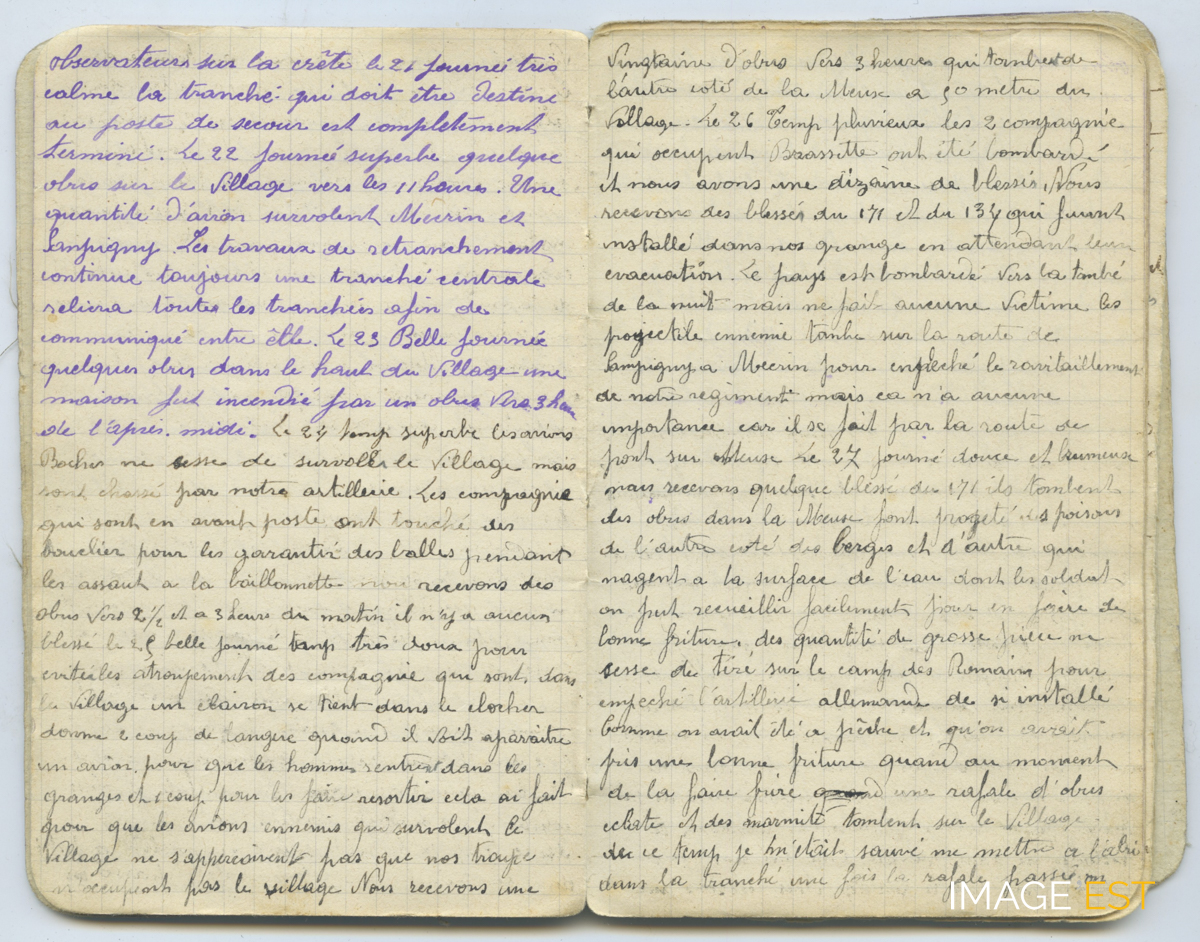 observateurs sur la crête le 21 journeé très
calme la tranché qui doit être destiné
au poste de secour est completement
terminé. Le 22 journeé superbe quelque
obus sur le village vers les 11 heures. Une
quantité d'avion survolent Mecrin et
Sampigny. Les travaux de retranchement
continue toujours une tranché centrale
reliera toutes les tranchées afin de
communiqué entre êlle. Le 23 Belle journée
quelques obus dans le haut du village une
maison fut incendié par un obus vers 3 heure
de l'après-midi. Le 24 temp superbe les avions
Boches ne cesse de survoller le village mais
sont chassé par notre artillerie. Les compagnie
qui sont en avant poste ont touché des
bouclier pour les garantir des balles pendant
les assaut a la baillonnette nous recevons des
obus vers 2 1/2 et a 3 heure du matin il n'y a aucun
blessé le 25 belle journé temp très doux pour
evité les atroupement des compagnie qui sont dans
le village un clairon se tient dans le clocher
donne 2 coup de langue quand il voit aparaitre
un avion pour que les hommes rentrent dans les
granges et 1 coup pour les faire resortir cela ai fait
pour que les avions ennemis qui survolent le
village ne s'apperçoivent pas que nos troupe
n'occupent pas le village Nous recevons une
vingtaine d'obus vers 3 heures qui tombent de
l'autre coté de la Meuse a 50 metre du
village. Le 26 Temp pluvieux les 2 compagnie
qui occupent Brassette ont été bombardé
et nous avons une dizaine de blessés, Nous
recevons des blessés du 171 et du 134 qui furent
installé dans nos grange en attendant leur
evacuation. Le pays est bombardé vers la tombé
de la nuit mais ne fait aucune victime les
projectile ennemie tombe sur la route de
Sampigny a Mecrin pour enpêché le ravitaillement
de notre regiment mais ca n'a aucune
importance car il se fait par la route de
pont sur Meuse Le 27 journé douce et brumeuse
nous recevons quelque blessé du 171 ils tombent
des obus dans la Meuse font progeté des poisons
de l'autre coté des berges et d'autre qui
nagent a la surface de l'eau dont les soldat
on put recueillir facilement pour en faire de
bonne friture, des quantité de grosse piece ne
cesse de tiré sur le camp des Romains pour
empeché l'artillerie allemand de si installé
Comme on avait été a pêche et qu'on avait
pris une bonne friture quand au moment
de la faire frire une rafale d'obus
eclate et des marmite tombent sur le village
du ce temp je m'etait sauvé me mettre a l'abri
dans la tranché une fois la rafale passée
IMAGE EST